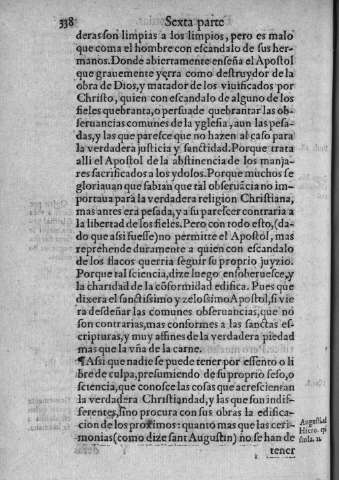 338 Sexta parte
deras son limpias a los limpios, pero es malo
que coma el hombre con escandalo de sus her-
manos. Donde abiertamente enseña el Apostol
que grauemente yerra como destruydor de la
obra de Dios, y matador de los viuificados por
Christo, quien con escandalo de alguno de los
fieles quebranta, o persuade quebrantar las ob-
seruancias comunes de la yglesia, aun las pesa-
das, y las que paresce que no hazen al caso para
la verdadera justicia y sanctidad. Porque trata
alli el Apostol de la abstinencia de los manja-
res sacrificados a los ydolos. Porque muchos se
gloriauan que sabian que tal obseruãcia no im-
portaua para la verdadera religion Christiana,
mas antes era pesada, y a su parescer contraria a
la libertad de los fieles. Pero con todo esto, (da-
do que assi fuesse) no permitte el Apostol, mas
reprehende duramente a quien con escandalo
de los flacos querria seguir su proprio juyzio.
Porque tal sciencia, dize luego ensoberuesce, y
la charidad de la cõformidad edifica. Pues que
dixera el sanctissimo y zelosissimo Apostol, si vie
ra desdeñar las comunes obseruancias, que no
son contrarias, mas conformes a las sanctas es-
cripturas, y muy affines de la verdadera piedad
mas que la vña de la carne.
¶ Assi que nadie se puede tener por essento o li
bre de culpa, presumiendo de su proprio seso, o
sciencia, que conosce las cosas que acrescientan
la verdadera Christiandad, y las que son indif-
ferentes, sino procura con sus obras la edifica-
cion de los proximos: quanto mas que las ceri-
monias (como dize sant Augustin) no se han de
tener
August. ad
Hiero. epi
stola. 11.